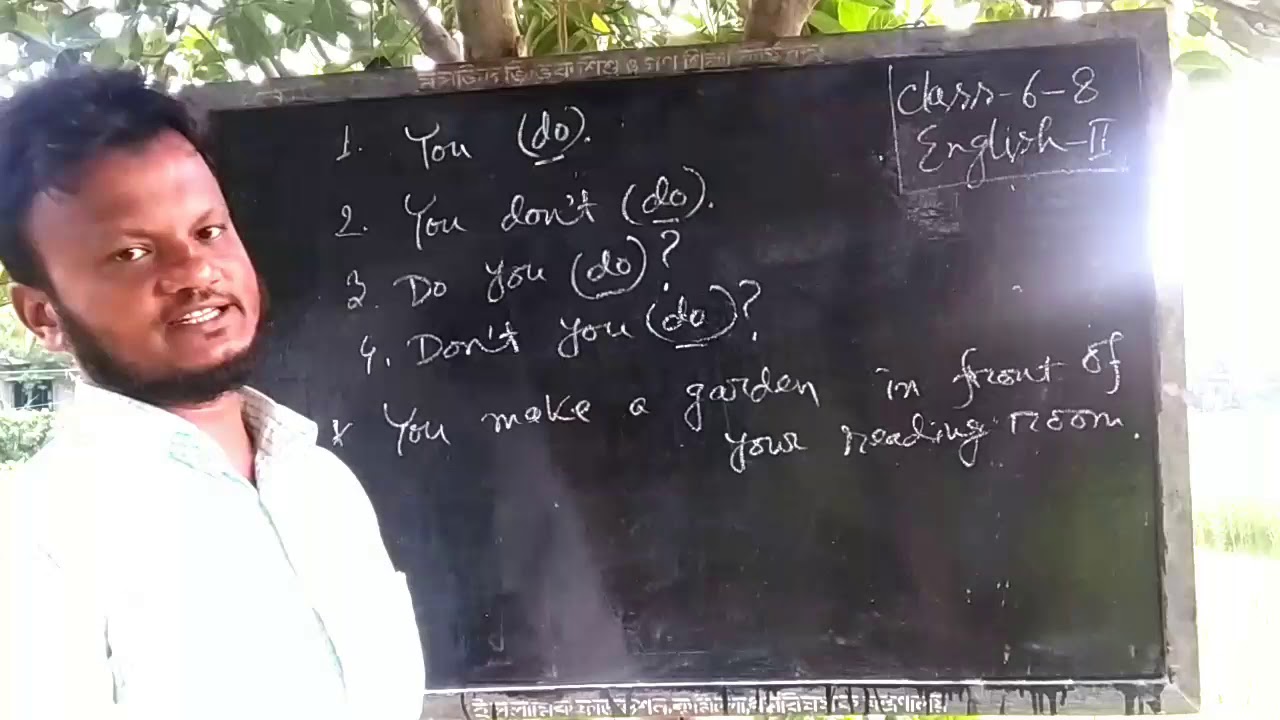 শিশু ও গণ শিক্ষা
class-6-8
English-II
1. You (do).
2. You don't (do).
3. Do you (do)?
4. Don't you (do)?
* You make a garden in front of
your reading room.
ইসলামিক ফাউন্ডেশন,